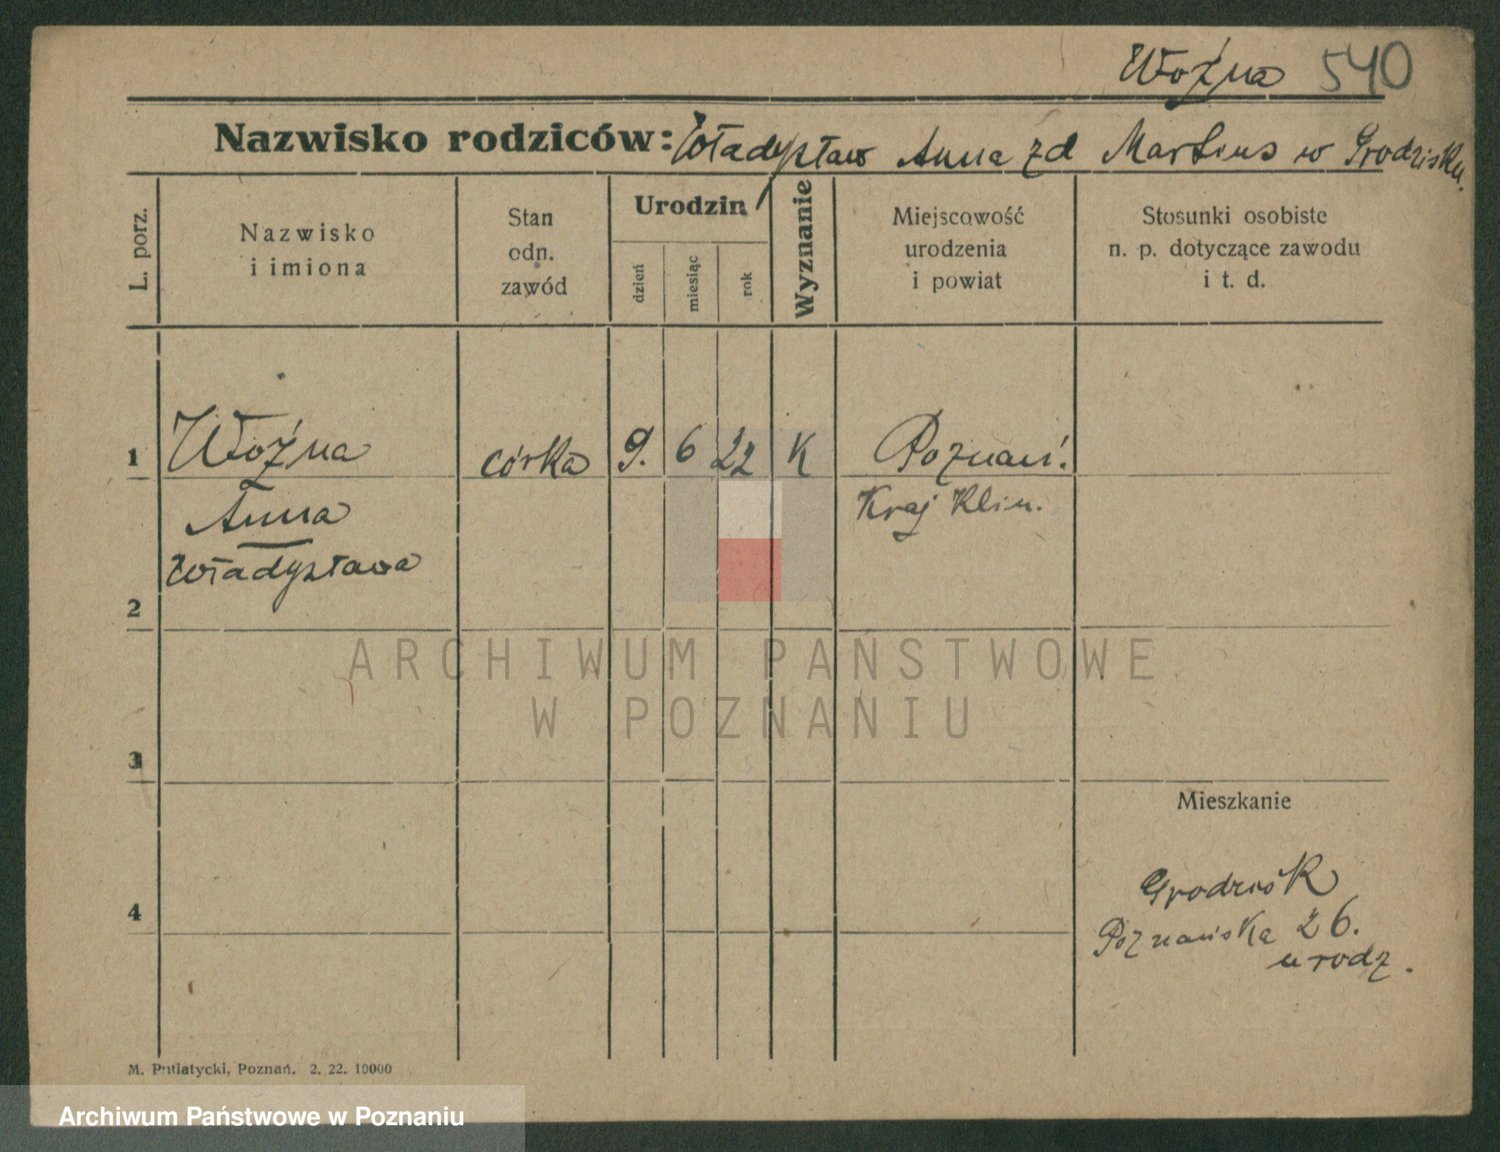 Woźna 540
Nazwisko rodziców: Władysław Anna zd Martens w Grodzisku.
L. porz.
Nazwisko
i imiona
Stan
odn.
zawód
Urodzin
dzień
miesiąc
rok
Wyznanie
Miejscowość
urodzenia
i powiat
Stosunki osobiste
n. p. dotyczące zawodu
i t. d.
1 Woźna córka 9. 6 22 K Poznań.
Anna Kraj Klin.
Władysława
2
3
Mieszkanie
4
Grodzisk
Poznańska 26.
urodz.
M. Putiatycki, Poznań. 2. 22. 10000
ARCHIWUM PAŃSTWOWE
W POZNANIU
Archiwum Państwowe w Poznaniu